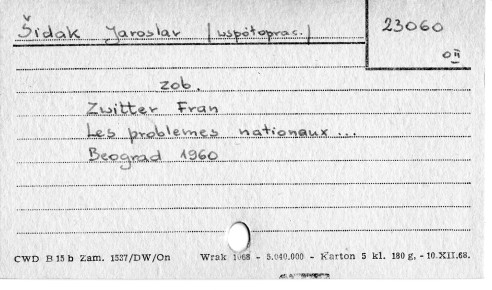 Šidak Jaroslav (współoprac.) 23060
OII
zob.
Zwitter Fran
Les problemes nationaux...
Beograd 1960
CWD B 15 b Zam. 1537/DW/On Wrak 1068 - 5.040.000 - Karton 5 kl. 180 g, - 10.XII.68.